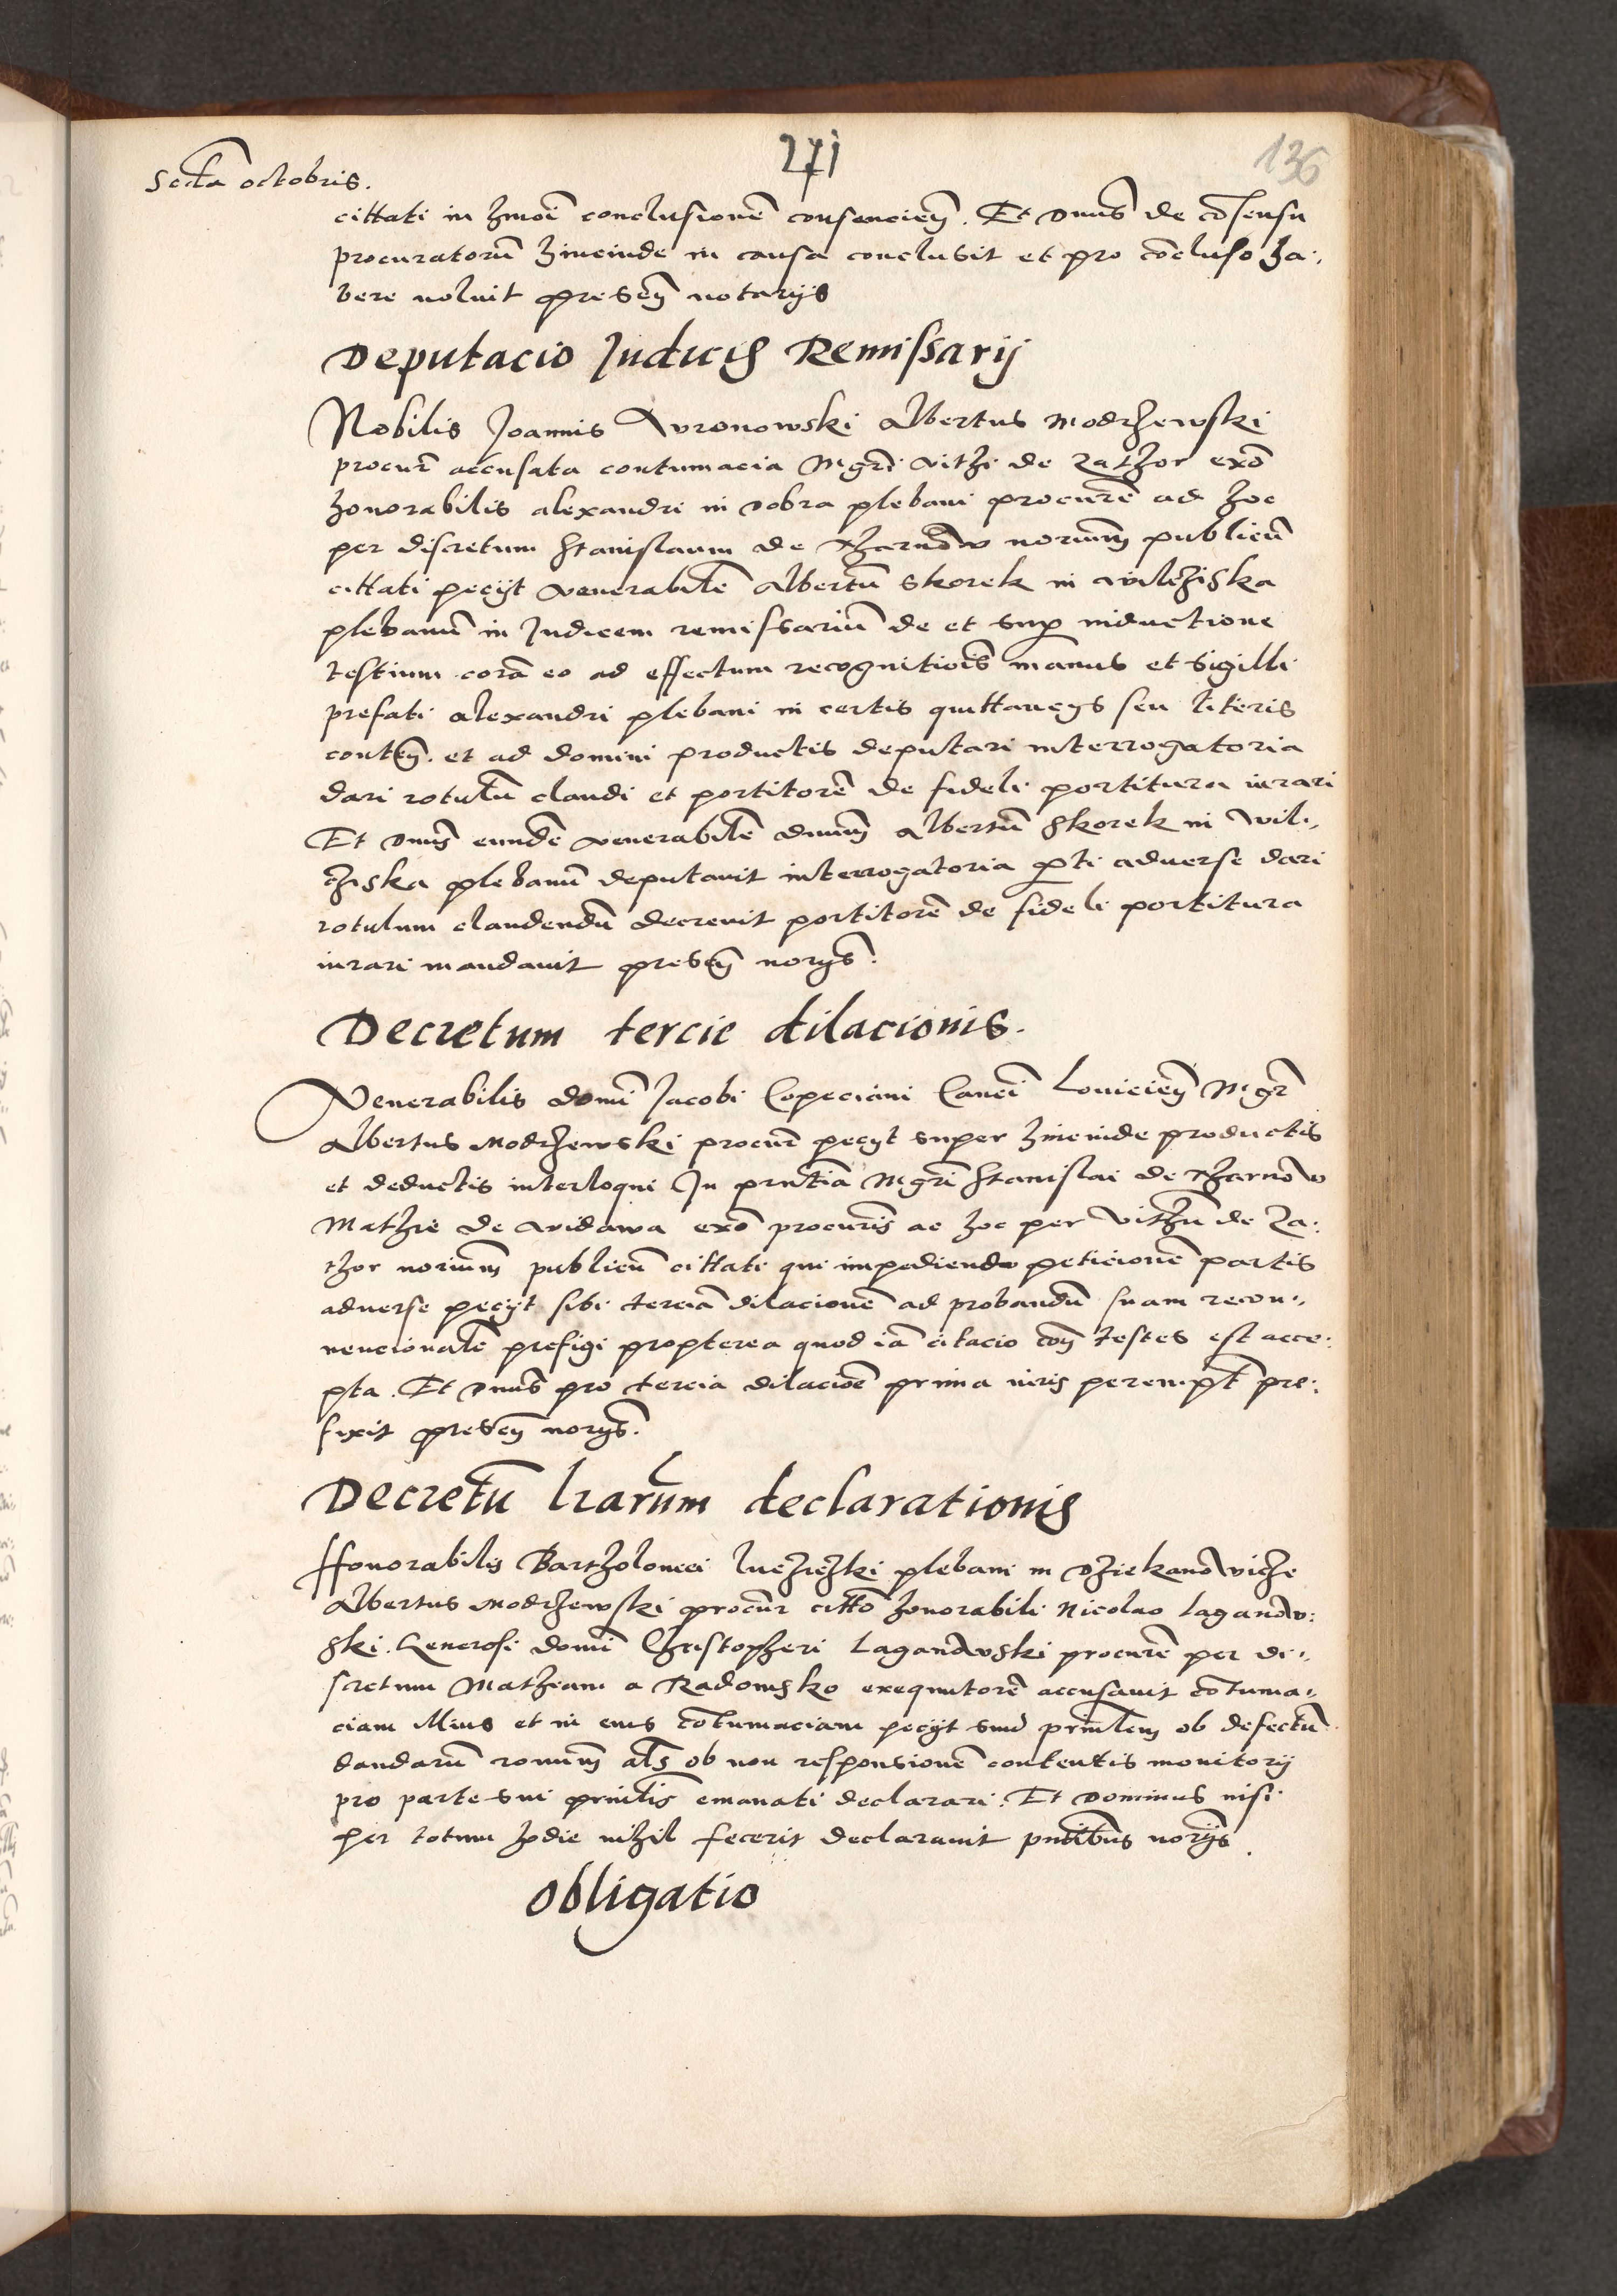 271
136
Scda octobris.
cittati in hmoi conclusionē consencieñ. Et Dnus de cōsensu
procuratorū hincinde in causa conclusit et pro cōcluso ha-
bere voluit preseñ notarijs
Deputacio Judicis Remissarij
Nobilis Joannis Wronowski Albertus Modrzewski
procur accusata contumacia Mgri Vithi de Zathor exō
honorabilis Alexandri in Dobra plebani procuris ad hoc
per discretum Stanislaum de Tharnow norium publicū
cittati pecijt venerabilē Albertū Skorek in Vilchiska
plebanū in Judicem remissariū de et sup inductione
testium corā eo ad effectum recognitiois manus et sigilli
prefati Alexandri plebani in certis quittancijs seu literis
conteñ. et ad domini productis deputari interrogatoria
dari rotulū claudi et portitorē de fideli portitura iurari
Et Dnus eundē venerabilē dnum Albertū Skorek in Vil-
chiska plebanū deputavit interrogatoria pti adverse dari
rotulum claudendū decrevit portitorē de fideli portitura
iurari mandavit preseñ norijs.
Decretum tercie dilacionis.
Venerabilis domi Jacobi Copeciani Canci Lovicieñ Mgr
Albertus Modrzewski procur pecijt super hincinde productis
et deductis interloqui In pntia Mgri Stanislai de Tharnow
Mathie de Vidawa exō procuris ac hoc per Vithū de Za-
thor norium publicū cittati qui impediendo peticionē partis
adverse pecijt sibi terciā dilacionē ad probandū suam recon-
vencionalē prefigi propterea quod iā citacio coñ testes est acce-
pta. Et Dnus pro tercia dilacioē prima iuris perempt pre-
fixit preseñ norijs.
Decretū lrarum declarationis
Honorabilis Bartholomei plebani in Dziekanowicze
Albertus Modrzewski procur citto honorabili Nicolao Laganow-
ski. Generosi domi Christopheri Laganowski procure per di-
scretum Mathiam a Radomsko exequutorē accusavit cōtuma-
ciam illius et in eius cōtumaciam pecijt sum prinlem ob defectū
dandarū ronum als ob non responsionē contentis monitorij
pro parte sui prinlis emanati declarari. Et Dominus nisi
per totum hodie nihil fecerit declaravit pntibus norijs.
Obligatio